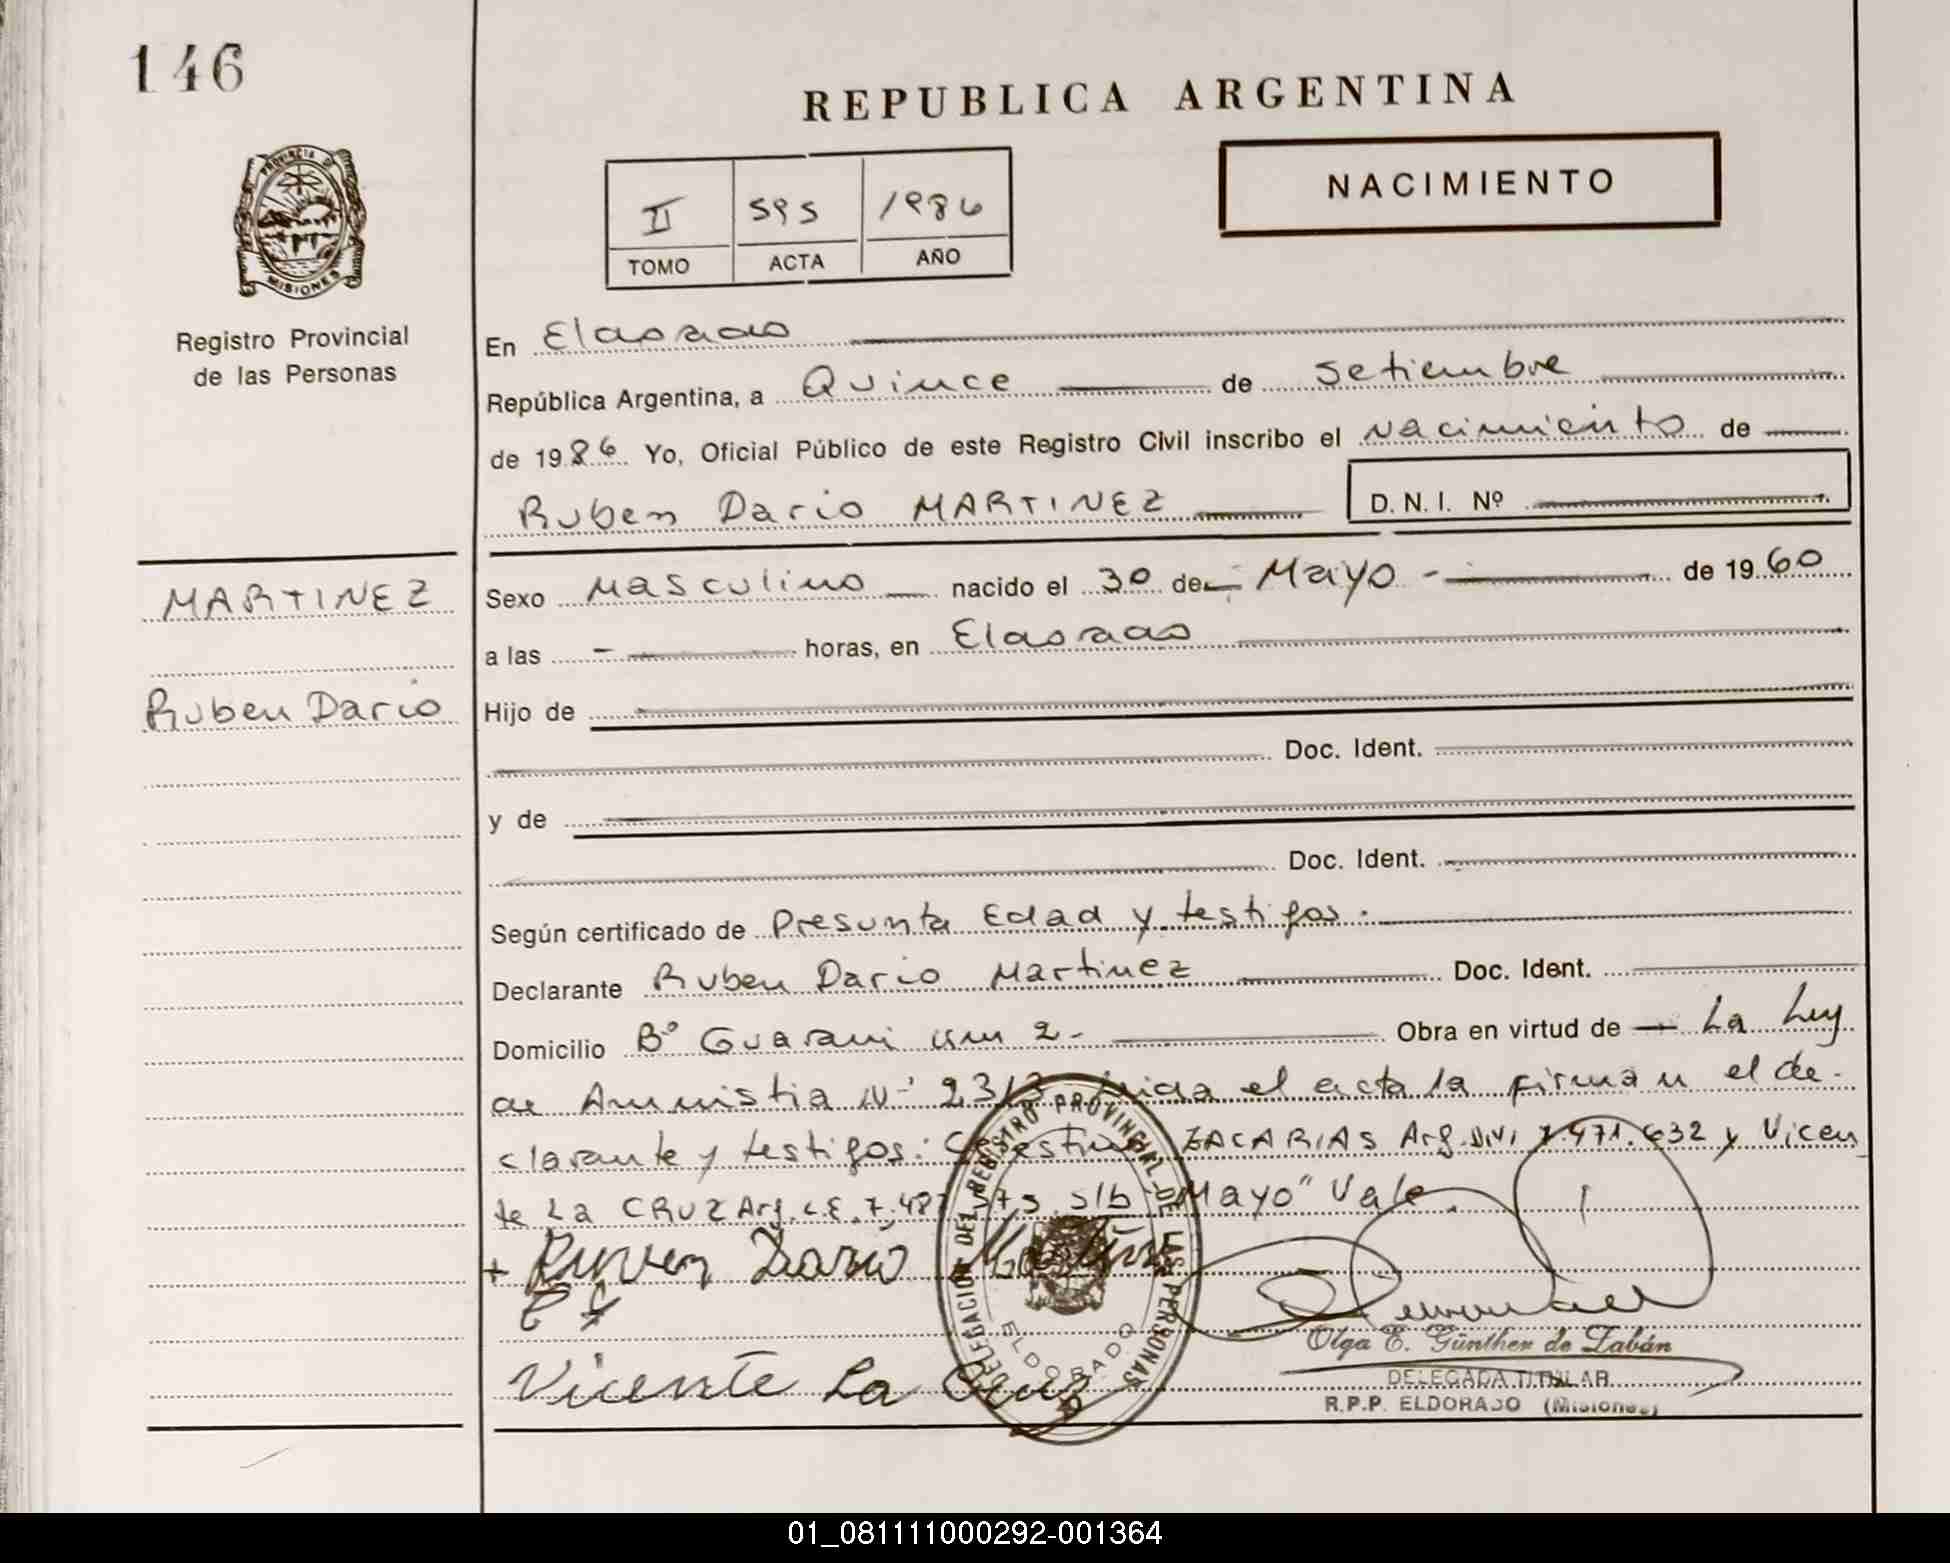 146
REPUBLICA ARGENTINA
NACIMIENTO
II 595 1986
TOMO ACTA AÑO
PROVINCIA DE MISIONES
Registro Provincial
de las Personas
En Eldorado
República Argentina, a Quince de Setiembre
de 1986 Yo, Oficial Público de este Registro Civil inscribo el Nacimiento de
Ruben Dario MARTINEZ D. N. I. Nº
MARTINEZ
Ruben Dario
Sexo Masculino nacido el 30 de Mayo - de 1960
a las - horas, en Eldorado
Hijo de
Doc. Ident.
y de
Doc. Ident.
Según certificado de Presunta Edad y testigos.
Declarante Ruben Dario Martinez Doc. Ident.
Domicilio Bº Guarani Km 2- Obra en virtud de La Ley
de Amnistia Nº 2313 leida el acta la firman el de-
clarante y testigos: ZACARIAS Arg. DNI 7.471.632 y Vicen
te La CRUZ Arg. C.E. s/b "Mayo" Vale.
+ Ruven Dario
Vicente La Cruz
DELEGACION DEL REGISTRO PROVINCIAL DE LAS PERSONAS
ELDORADO
Olga E. Günther de Zabán
DELEGADA TITULAR
R.P.P. ELDORADO (Misiones)
01_081111000292-001364